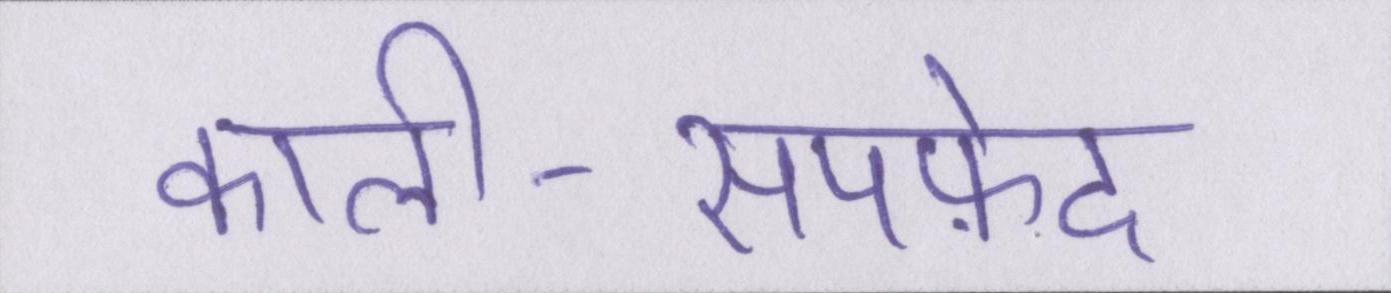 काली-सपफ़ेद